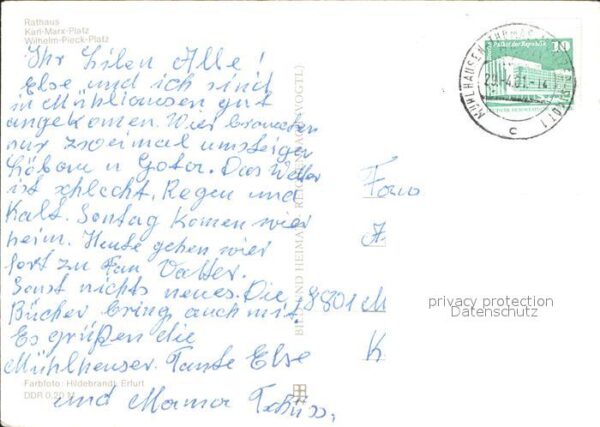 Rathaus
Karl-Marx-Platz
Wilhelm-Pieck-Platz
Ihr lieben Alle!
Else und ich sind
in Mühlhausen gut
angekomen. Wier brauchten
nur zweimal umsteigen
Löbau u Gotar. Das Wetter
ist schlecht. Regen und
Kalt. Sontag komen wier
heim. Heute gehen wier
fort zu Frau Valter.
Sonst nichts neues. Die
Bücher bring auch mit.
Es grüßen die
Mühlheuser. Tante Else
und Mama Tschüss.
Farbfoto: Hildebrandt, Erfurt
DDR 0,20 M
BILD UND HEIMAT REICHENBACH (VOGTL)
Palast der Republik 10
MÜHLHAUSEN THOMAS-MÜNTZER-STADT 1
c
Frau
A.
8801 M
K
privacy protection
Datenschutz